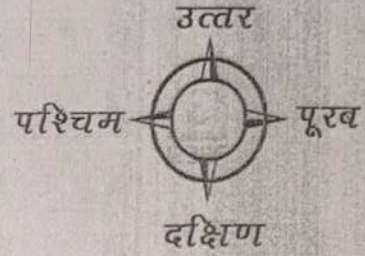 उत्तर
पश्चिम
पूरब
दक्षिण